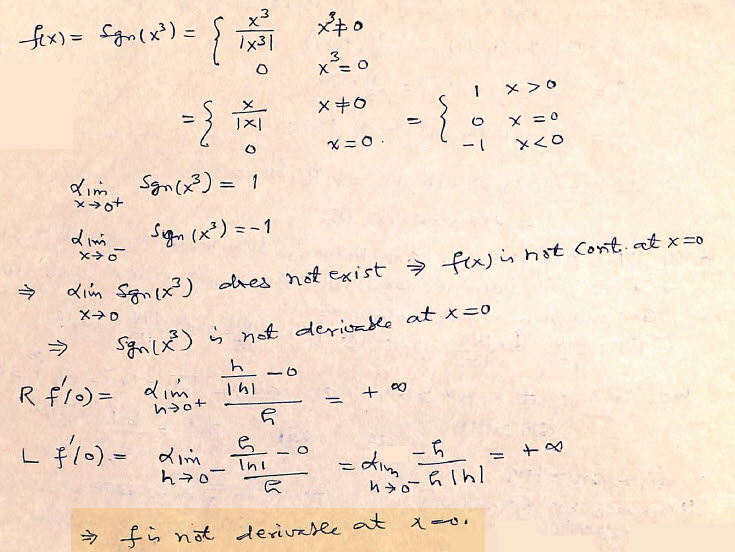 f(x) = Sgn(x³) = { x³/|x³| x³≠0
0 x³=0
= { x/|x| x≠0 = { 1 x>0
0 x=0. 0 x=0
-1 x<0
Lim x→0+ Sgn(x³) = 1
Lim x→0- Sgn(x³) = -1
⇒ Lim x→0 Sgn(x³) does not exist ⇒ f(x) is not cont. at x=0
⇒ Sgn(x³) is not derivable at x=0
R f'(0) = Lim h→0+ (h/|h| - 0)/h = +∞
L f'(0) = Lim h→0- (h/|h| - 0)/h = Lim h→0- -h/(h|h|) = +∞
⇒ f is not derivable at x=0.